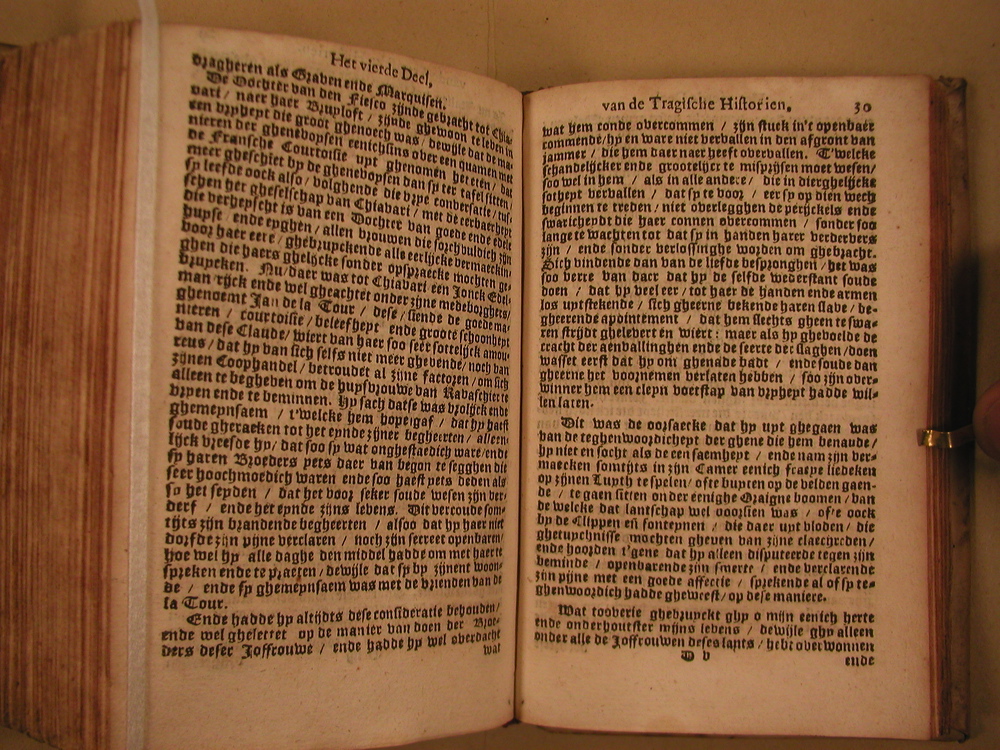 Het vierde Deel,
dragheren als Graven ende Marquisen.
De Dochter van den Fiesco zijnde gebracht tot Chia-
vari / naer haer Bruyloft / zijnde ghewoon te leven in
een vryheyt die groot ghenoech was / dewijle dat de ma-
nieren der ghenevoysen eenichsins over een quamen met
de Fransche Courtoisie uyt ghenomen het eten / dat
meer gheschiet by de ghenevoysen dan sy ter tafel sitten /
sy leefde oock also / volghende die vrye conversatie / tus-
schen het gheselschap van Chiabari / met de eerbaerheyt
die verheyscht is van een Dochter van goede ende edele
huyse / ende eyghen / allen vrouwen die sorchvuldich zijn
voor haer eere / ghebruyckende alle eerlijcke vermaeckin-
ghen die haers ghelijcke sonder opspraecke mochten ge-
bruycken. Nu / daer was tot Chiavari een Jonck Edel-
man rijck ende wel gheachter onder zijne medeborghers /
ghenoemt Jan de la Tour / dese / siende de goede ma-
nieren / courtoisie / beleefheyt ende groote schoonheyt
van dese Claude / wiert van haer soo seer sottelijck amou-
reus / dat hy van sich selfs niet meer ghevende / noch van
zijnen Coophandel / betroudet al zijne factozen / om sich
alleen te begheven om de huysvrouwe van Ravaschier te
vryen ende te beminnen. Hy sach datse was vrolijck ende
ghemeynsaem / t'welcke hem hope gaf / dat hy haest
soude gheraecken tot het eynde zijner begheerten / alleen-
lijck vreesde hy / dat soo sy wat onghestaedich ware / ende
sy haren Broeders yets daer van begon te segghen dit
seer hoochmoedich waren ende soo haest yets deden als
so het seyden / dat het voor seker soude wesen zijn ver-
derf / ende het eynde zijns levens. Dit vercoude som-
tijts zijn brandende begheerten / alsoo dat hy haer niet
dorfde zijn pijne verclaren / noch zijn secreet openbaren /
hoe wel hy alle daghe den middel hadde om met haer te
spreken ende te praezen / dewijle dat sy by zijnent woon-
de / ende sy ghemeynsaem was met de vrienden van de
la Tour.
Ende hadde hy altijdts dese consideratie behouden /
ende wel gheletter op de manier van doen der Broe-
ders deser Joffrouwe / ende hadde hy wel overdacht
wat
van de Tragische Historien, 30
wat hem conde overcommen / zijn stuck in't openbaer
commende / hy en ware niet vervallen in den afgront van
jammer / die hem daer naer heeft overvallen. T'welcke
schandelijcker ende grootelijcr te misprijsen moet wesen /
soo wel in hem / als in alle andere / die in dierghelijcke
sotheyt vervallen / dat sy te voor / eer sy op dien wech
beginnen te treden / niet overlegghen de perijckels ende
swaricheydt die haer connen overcommen / sonder soo
lange te wachten tot dat sy in handen harer verdervers
zijn / ende sonder verlossinghe worden om ghebracht.
Sich vindende dan van de liefde besprongen / het was
soo verre van daer dat hy de selfde wederstant soude
doen / dat hy veel eer / tot haer de handen ende armen
los uytstekende / sich gheerne bekende haren slave / be-
gheerende apointement / dat hem slechts gheen te swa-
ren strijdt ghelevert en wiert : maer als hy ghevoelde de
cracht der aenvallinghen ende de seerte der slaghen / doen
wasset eerst dat hy om ghenade badt / ende soude dan
gheerne het voornemen verlaten hebben / soo zijn over-
winner hem een cleyn voerstap van vryheyt hadde wil-
len laten.
Dit was de oorsaecke dat hy uyt ghegaen was
van de teghenwoordicheyt der ghene die hem benaude /
hy niet en socht als de eensaemheyt / ende nam zijn ver-
maecken somtijts in zijn Camer eenich fraeye liedeken
op zijnen Luyth te spelen / ofte buyten op de velden gaen-
de / te gaen sitten onder eenighe Oraigne boomen / van
de welcke dat lantschap wel voorsien was / ofte oock
by de Clippen eñ fonteynen / die daer uyt vloden / die
ghetuychnisse mochten gheven van zijne claechreden /
ende hoorden t'gene dat hy alleen disputeerde tegen zijn
beminde / openbarende zijn smerte / ende verclarende
zijn pijne met een goede affectie / sprekende al of sy te-
ghenwoordich hadde gheweest / op dese maniere.
Wat tooverie ghebruyckt ghy o mijn eenich herte
ende onderhoutster mijns levens / dewijle ghy alleen
onder alle de Joffrouwen deses lants / hebt overwonnen
D v
ende